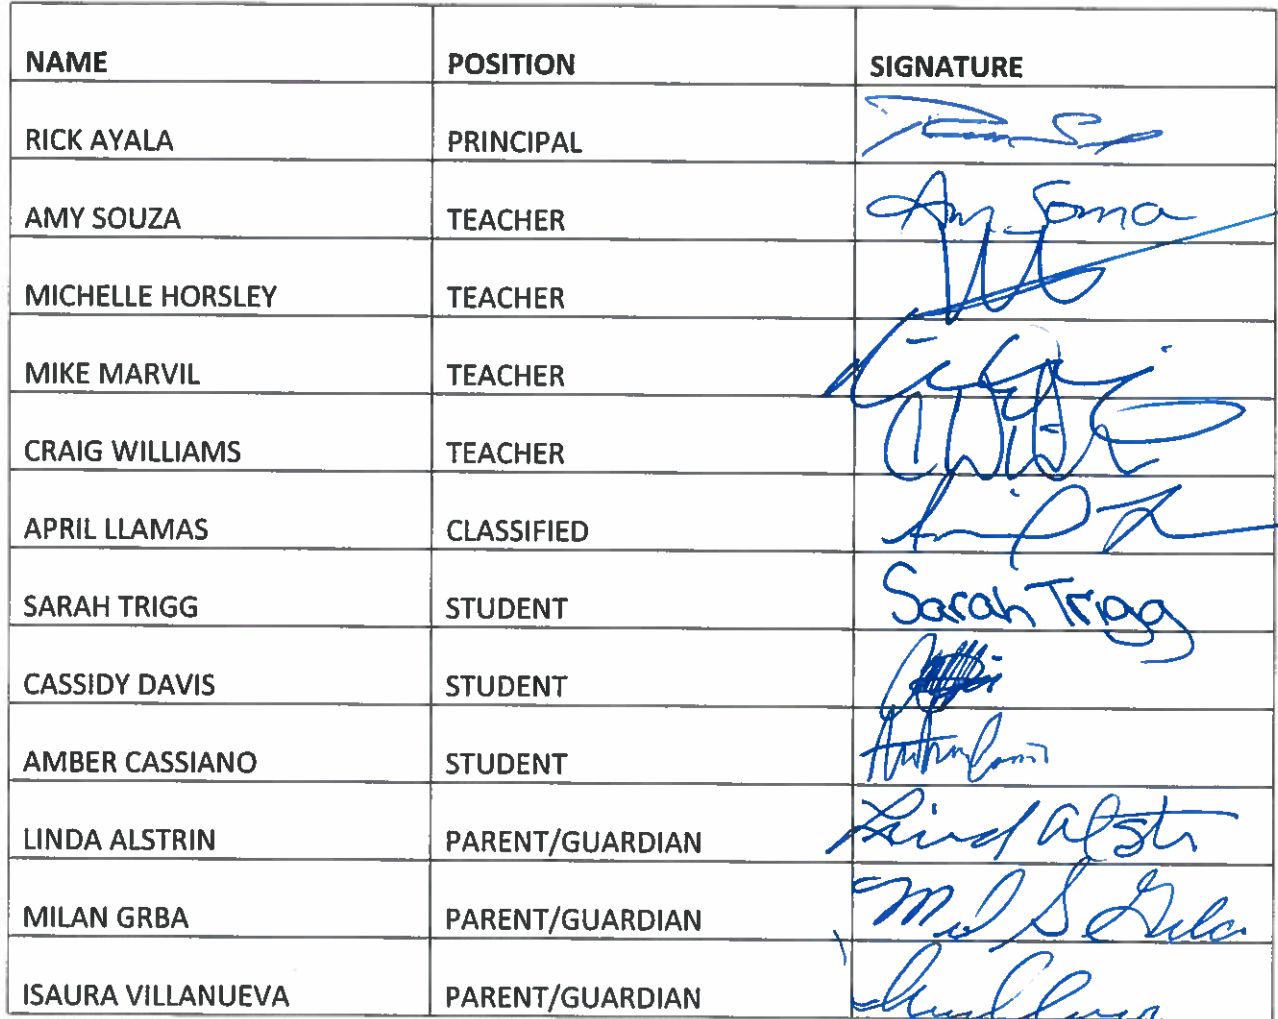 NAME POSITION SIGNATURE
RICK AYALA PRINCIPAL
AMY SOUZA TEACHER Amy Souza
MICHELLE HORSLEY TEACHER
MIKE MARVIL TEACHER
CRAIG WILLIAMS TEACHER
APRIL LLAMAS CLASSIFIED
SARAH TRIGG STUDENT Sarah Trigg
CASSIDY DAVIS STUDENT
AMBER CASSIANO STUDENT
LINDA ALSTRIN PARENT/GUARDIAN
MILAN GRBA PARENT/GUARDIAN
ISAURA VILLANUEVA PARENT/GUARDIAN